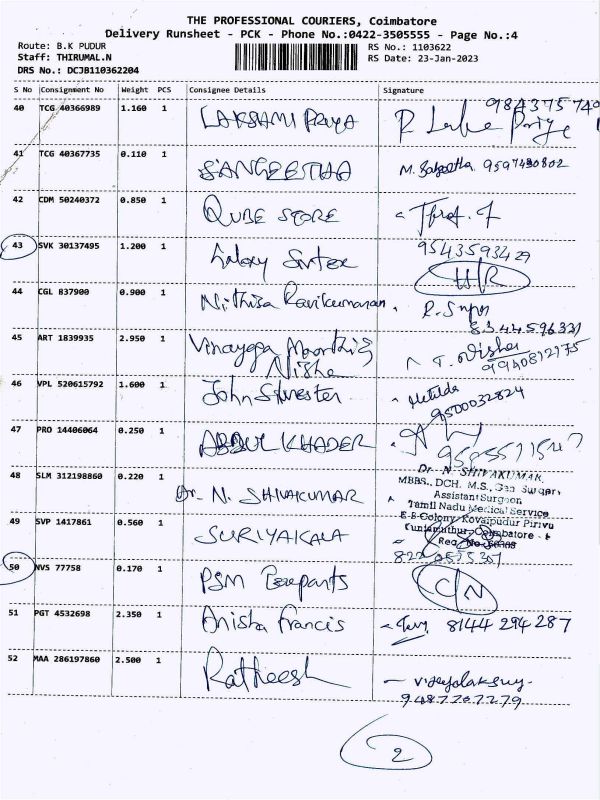 THE PROFESSIONAL COURIERS, Coimbatore
Delivery Runsheet - PCK - Phone No.:0422-3505555 - Page No.:4
Route: B.K PUDUR RS No.: 1103622
Staff: THIRUMAL.N RS Date: 23-Jan-2023
DRS No.: DCJB110362204
S No Consignment No Weight PCS Consignee Details Signature
40 TCG 40366989 1.160 1 LAKSHMI PRIYA
41 TCG 40367735 0.110 1 SANGEETHA M. 9597490802
42 CDM 50240372 0.850 1 QUBE STORE
9543593429
43 SVK 30137495 1.200 1 Galaxy H/R
44 CGL 837900 0.900 1 Nithisa Ravikumaran
8344596321
45 ART 1839935 2.950 1 Vinayaga Moorthis T. Nisha
Nisha 9940812175
46 VPL 520615792 1.600 1 John Silvester Metilda
9500032824
47 PRO 14406064 0.250 1 ABDUL KHADER
48 SLM 312198860 0.220 1 Dr. N. SHIVAKUMAR
Dr. N. SHIVAKUMAR,
MBBS., DCH. M.S., Gen Surgery
Assistant Surgeon
Tamil Nadu Medical Service
E-B-Colony, Kovaipudur Pirivu
Kuniamuthur, Coimbatore - 8
49 SVP 1417861 0.560 1 SURIYAKALA
50 NVS 77758 0.170 1 PSM C/N
51 PGT 4532698 2.350 1 Anisha Francis 8144 294 287
52 MAA 286197860 2.500 1 Ratheesh
9487207279
2